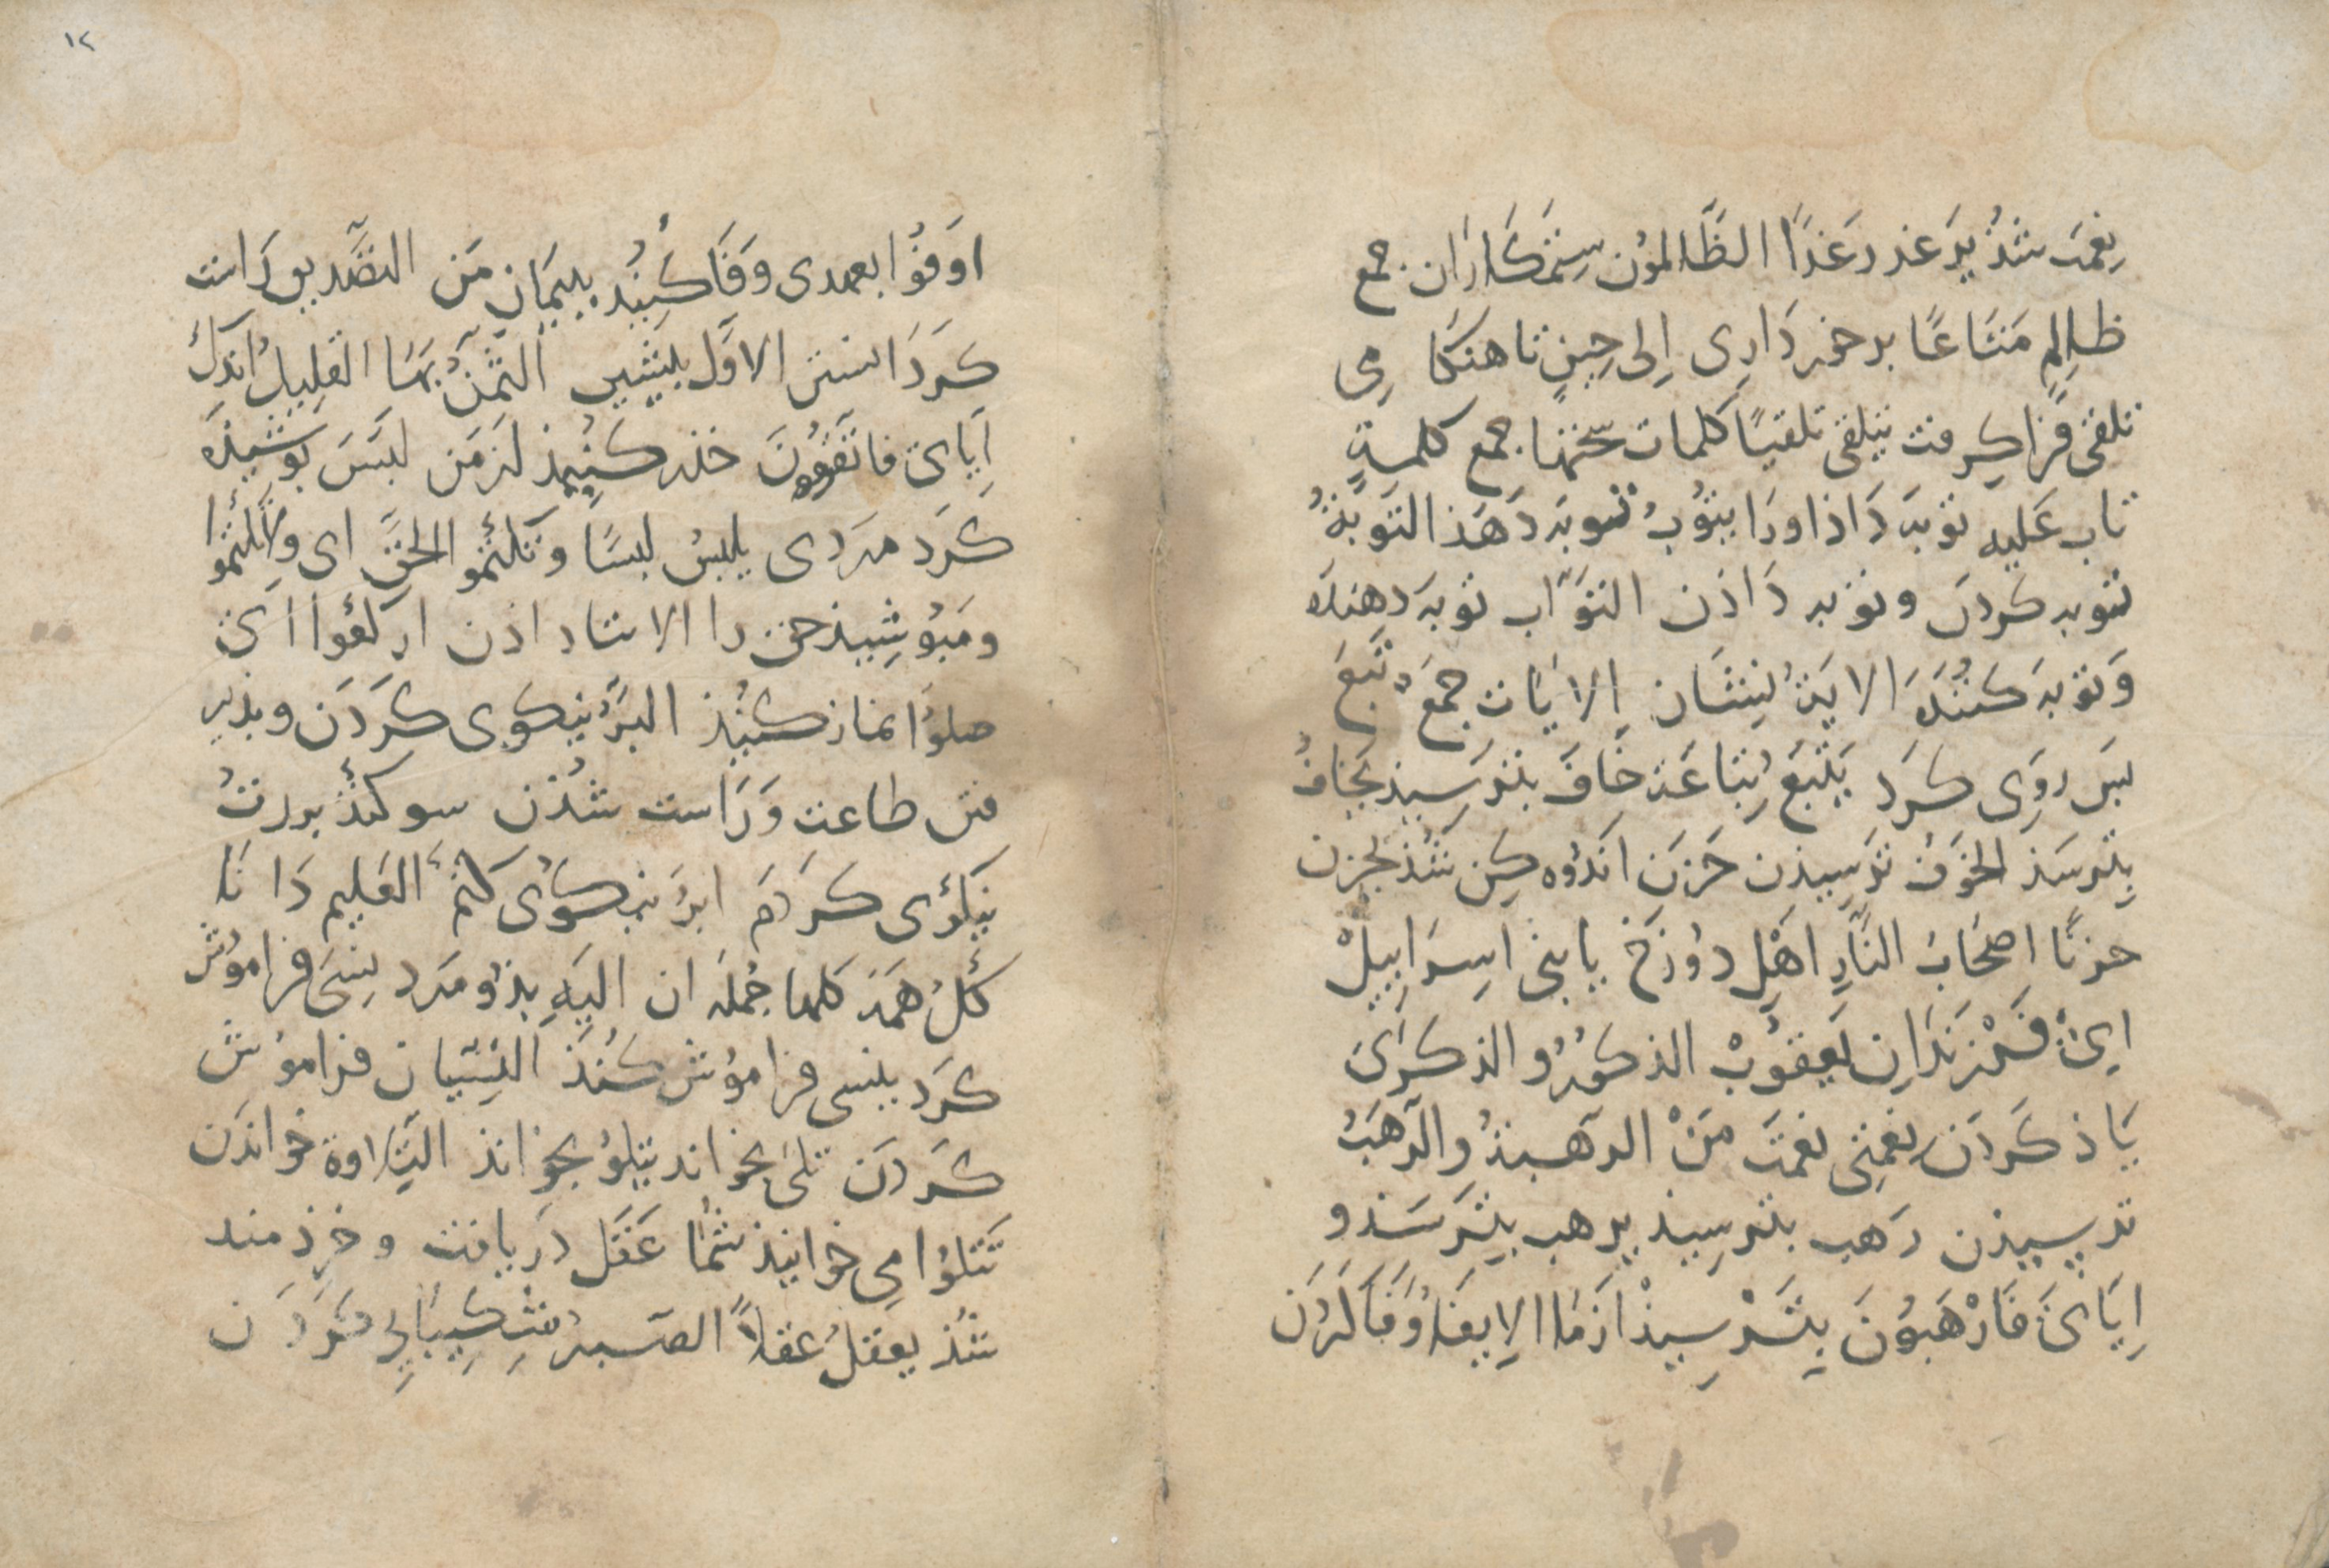 نِعْمَت شُذ يَرغد رَغَدًا الظَّالمُون سِتَمكَارَان جمع
ظالِمٍ مَتَاعًا برخورداری اِلی حِینٍ تا هنکامِی
تلقی فرَا کرفت یتلقی تلقیًا کلمات سخنها جمع کلمةٍ
تاب عَلیه توبه دَاذ اورا یتُوبُ توبه دَهَذ التوبَةُ
توبه کردن و توبه دَاذن التوَّاب توبه دهنده
وَتوبه کننده الایَة نِشان الایَات جمعَ تَبِعَ
بس رَوِی کرَد یَتبَعُ تباعَة خَافَ بترسِیذ یَخافُ
بِترسَذ الخوَف ترسِیذن حَزِنَ اندُوه کِن شُذ یحزن
حزنًا اصحَابُ النَّارِ اهْلِ دُوزخ یا بنی اسِرَاییِلْ
ایْ فَرْزندَانِ یَعقوُبْ الذکرُ و الذکرَی
یَاذ کَردَن نِعمَتِی نِعمَت مَنْ الرهَبةُ وِالرَّهَبُ
ترسِیذن رَهب بترسِیذ یرهب بِترَسَذ و
اِیَّایَ فَارْهَبُونَ بِتَرْسِیذْ اَزمَا الاِیفَاُ وَفَا کَردَن
۱۲
اوَفُوا بعهدی وَفَا کُنِیْد بِبیمَانِ مَن التصَّدیق رَاست
کرَدَاشتن الاوَّل بیشِین الثمَّنُ بهَا القَلِیلُ اندَک
اِیَّایَ فاتقُونَ حذر کنُیِذ ازمَن لبَسَ بوشیذه
کَرد مردی یلبِسُ لبسًا و تکتُمُو الحَقَّ ای ولَا تکتُمُوا
و مَبوُشِیذ حق را الاستاد اذن ارکعُوا ایَ
صلوُا نماز کنُیذ البِرُّ نیکوِی کرَدَن و بذیر
فتن طاعت وَرَاست شُذن سوکند بررتُ
نیکوُی کرَدَم ابرُ نیکوُی کنم العَلِیم دَانا
کُلُ همَه کلها جُملَه ان الیَهِ بذوُ مرد نَسِیَ فرامُوش
کرَد ینسی فرامُوش کنذَ النِّسیان فرامُوش
کَردَن تلیَ بخواند یتلوُ بخوَانذ التِّلاوة خواندَن
تَتلُوا می خوانیذ شُمَا عَقَل دریافت و خرِذ مند
شُذ یعقلُ عقلاً الصَبرُ شِکیبَایی کَردَن